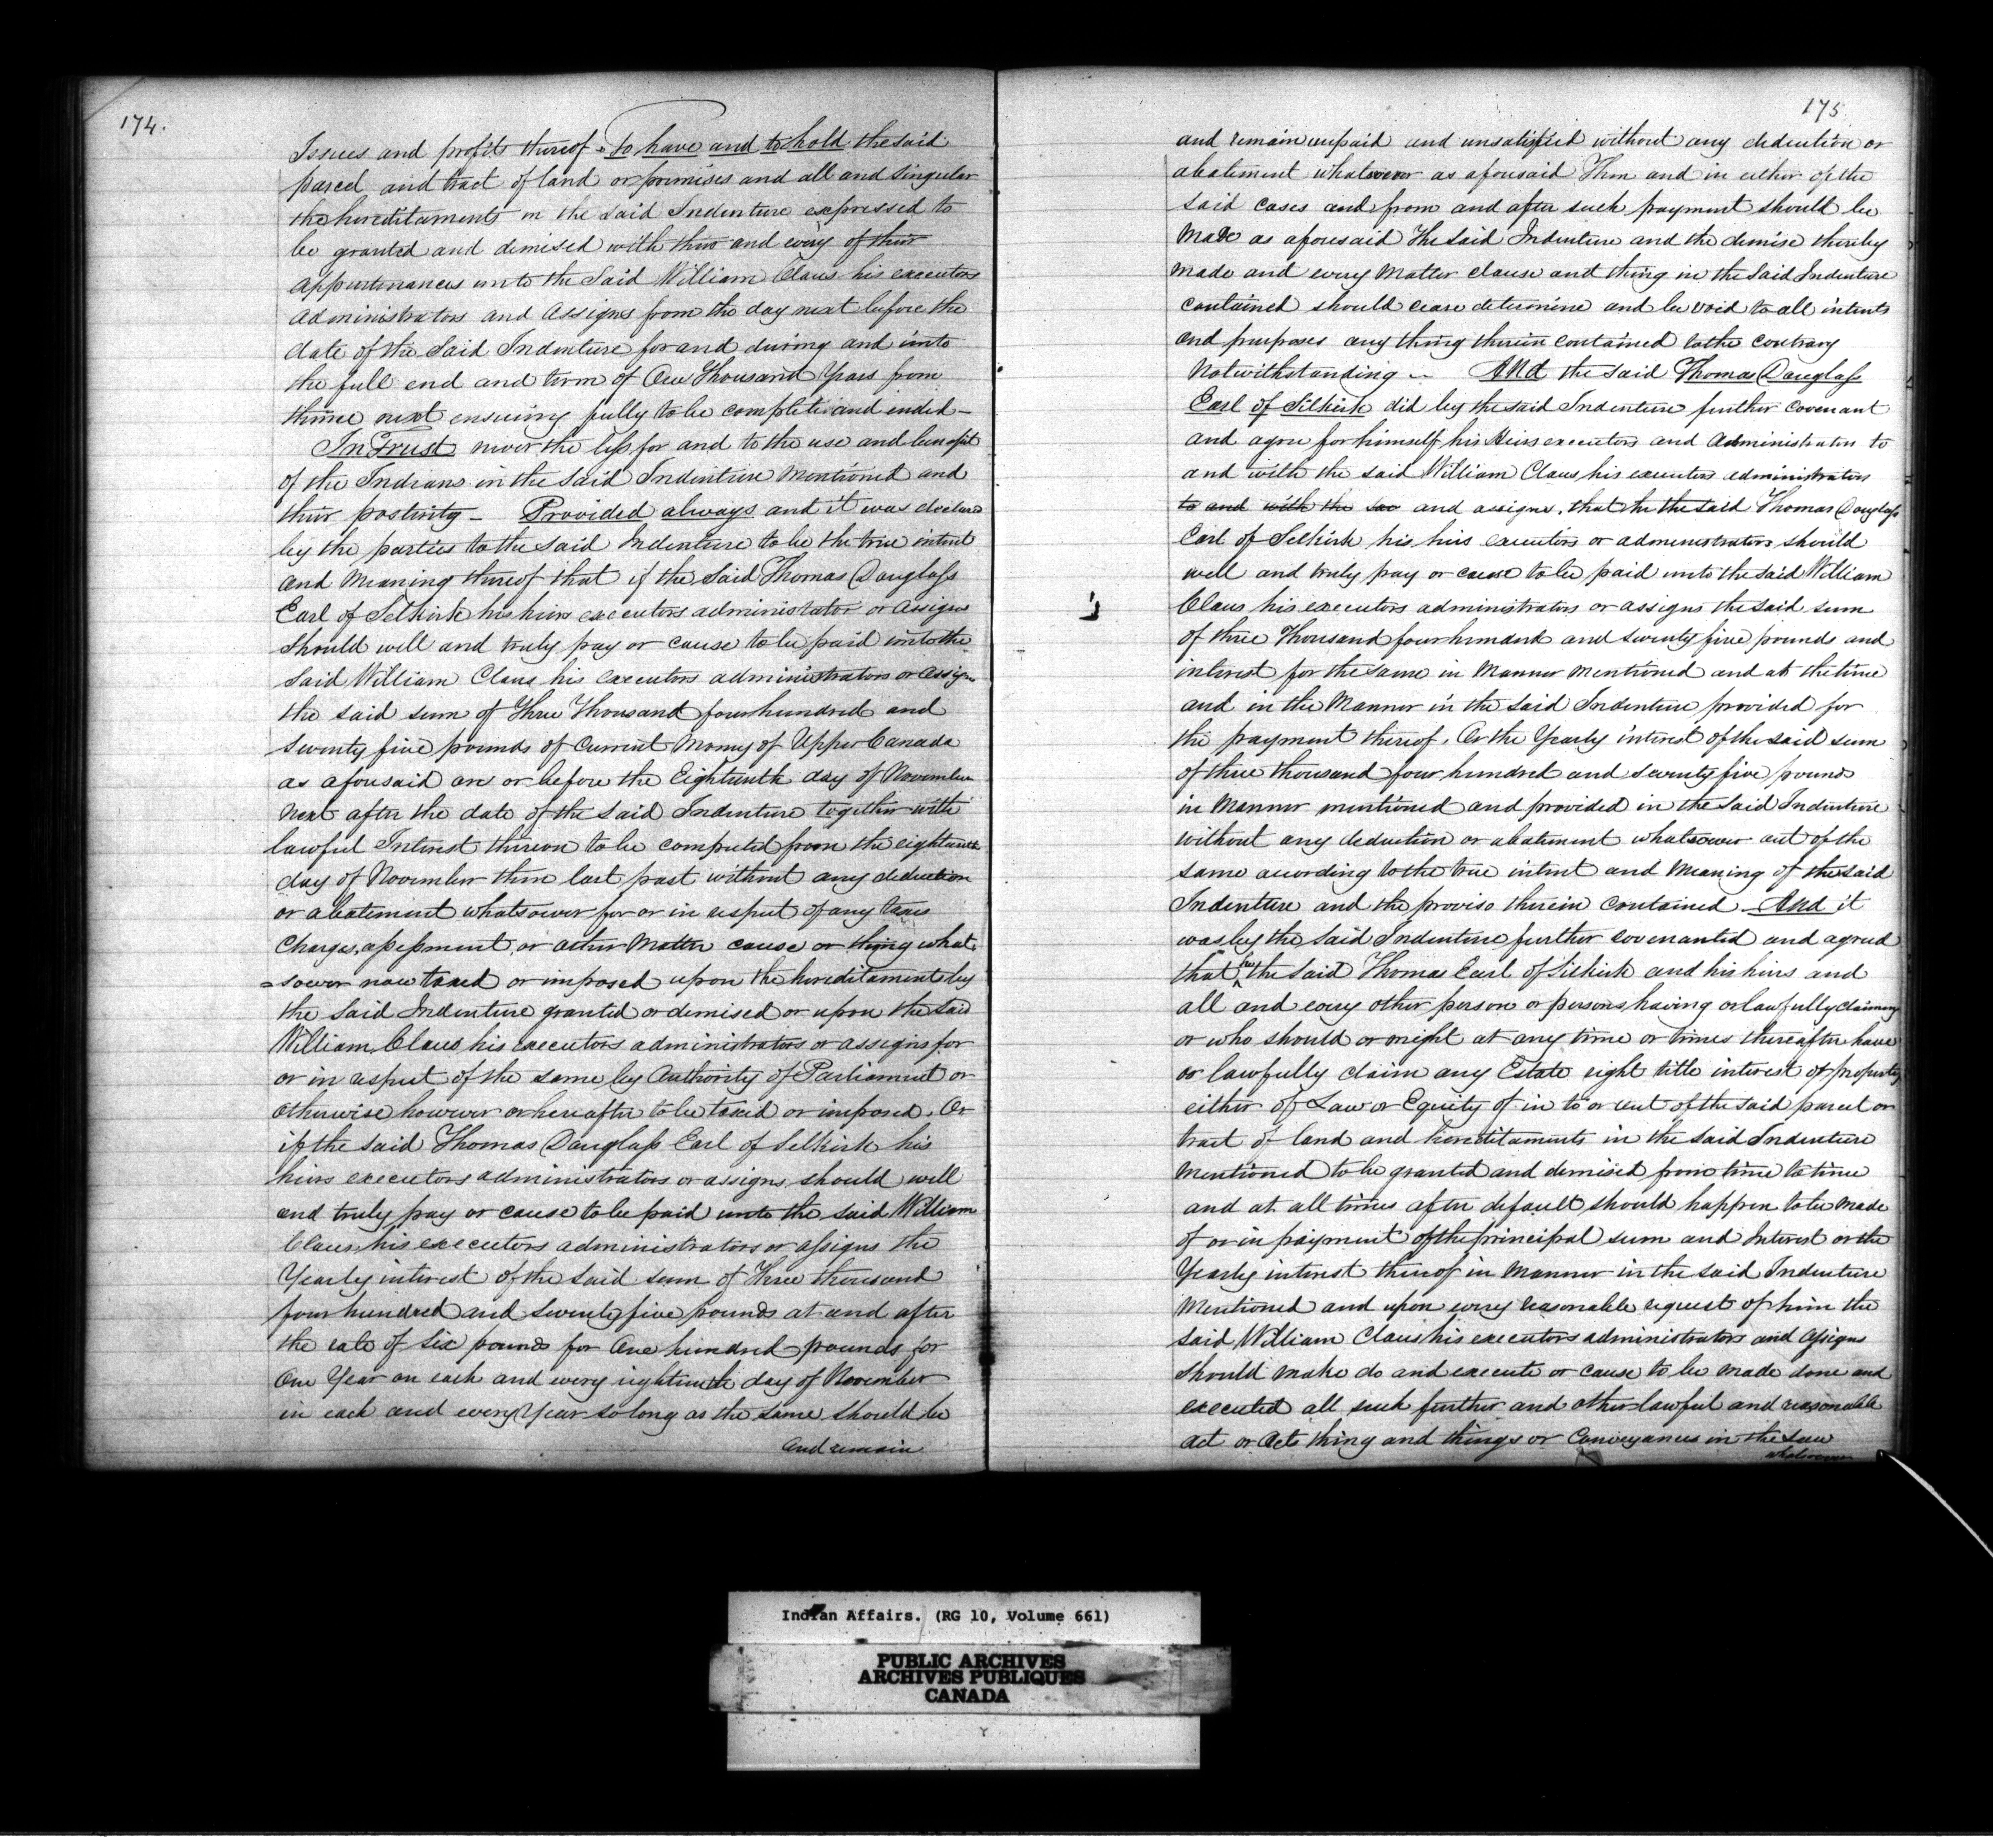 174.
Issues and profits thereof - To have and to hold the said
parcel and tract of land or premises and all and singular
the hereditaments in the said Indenture expressed to
be granted and demised with their and every of their
appurtenances unto the said William Claus his executors
administrators and assigns from the day next before the
date of the said Indenture for and during and unto
the full end and term of One Thousand Years from
thence next ensuing fully to be complete and ended -
In Trust never the less for and to the use and benefit
of the Indians in the said Indenture Mentioned and
their posterity - Provided always and it was declared
by the parties to the said Indenture to be the true intent
and Meaning thereof that if the said Thomas Douglass
Earl of Selkirk his heirs executors administrator or assigns
should well and truly pay or cause to be paid unto the
said William Claus his executors administrators or assigns
the said sum of Three Thousand four hundred and
seventy five pounds of Current Money of Upper Canada
as aforesaid on or before the Eighteenth day of November
next after the date of the said Indenture together with
lawful Interest thereon to be computed from the eighteenth
day of November then last past without any deduction
or abatement whatsoever for or in respect of any taxes
Charges, assessment, or other Matter cause or thing what
=soever now taxed or imposed upon the hereditaments by
the said Indenture granted or demised or upon the said
William Claus his executors administrators or assigns for
or in respect of the same by Authority of Parliament or
otherwise however or hereafter to be taxed or imposed. Or
if the said Thomas Douglass Earl of Selkirk his
heirs executors administrators or assigns should well
and truly pay or cause to be paid unto the said William
Claus his executors administrators or assigns the
Yearly interest of the said sum of Three thousand
four hundred and seventy five pounds at and after
the rate of six pounds for One hundred pounds for
One Year on each and every eighteenth day of November
in each and every Year so long as the same should be
and remain
175
and remain unpaid and unsatisfied without any deduction or
abatement whatsoever as aforesaid Then and in either of the
said cases and from and after such payment should be
made as aforesaid the said Indenture and the demise thereby
made and every Matter clause and thing in the said Indenture
contained should cease determine and be void to all intents
and purposes any thing therein contained to the contrary
Notwithstanding - And the said Thomas Douglass
Earl of Selkirk did by the said Indenture further covenant
and agree for himself, his Heirs executors and Administrators to
and with the said William Claus his executors administrators
to and with the sai and assigns, that he the said Thomas Douglass
Earl of Selkirk his heirs executors or administrators should
well and truly pay or cause to be paid unto the said William
Claus his executors administrators or assigns the said sum
of three Thousand four hundred and seventy five pounds and
interest for the same in Manner Mentioned and at the time
and in the Manner in the said Indenture provided for
the payment thereof. Or the Yearly interest of the said sum
of three thousand four hundred and seventy five pounds
in Manner mentioned and provided in the said Indenture
without any deduction or abatement whatsoever out of the
same according to the true intent and Meaning of the said
Indenture and the proviso therein contained And it
was by the said Indenture further covenanted and agreed
that he the said Thomas Earl of Selkirk and his heirs and
all and every other person or persons having or lawfully claiming
or who should or might at any time or times thereafter have
or lawfully claim any Estate right title interest of property
either of Law or Equity of in to or out of the said parcel or
tract of land and hereditaments in the said Indenture
Mentioned to be granted and demised from time to time
and at all times after default should happen to be made
of or in payment of the principal sum and Interest or the
Yearly interest thereof in Manner in the said Indenture
Mentioned and upon every reasonable request of him the
said William Claus his executors administrators and assigns
should make do and execute or cause to be made done and
executed all such further and other lawful and reasonable
act or acts thing and things or Conveyances in the Law
whatsoever
Indian Affairs. (RG 10, Volume 661)
PUBLIC ARCHIVES
ARCHIVES PUBLIQUES
CANADA